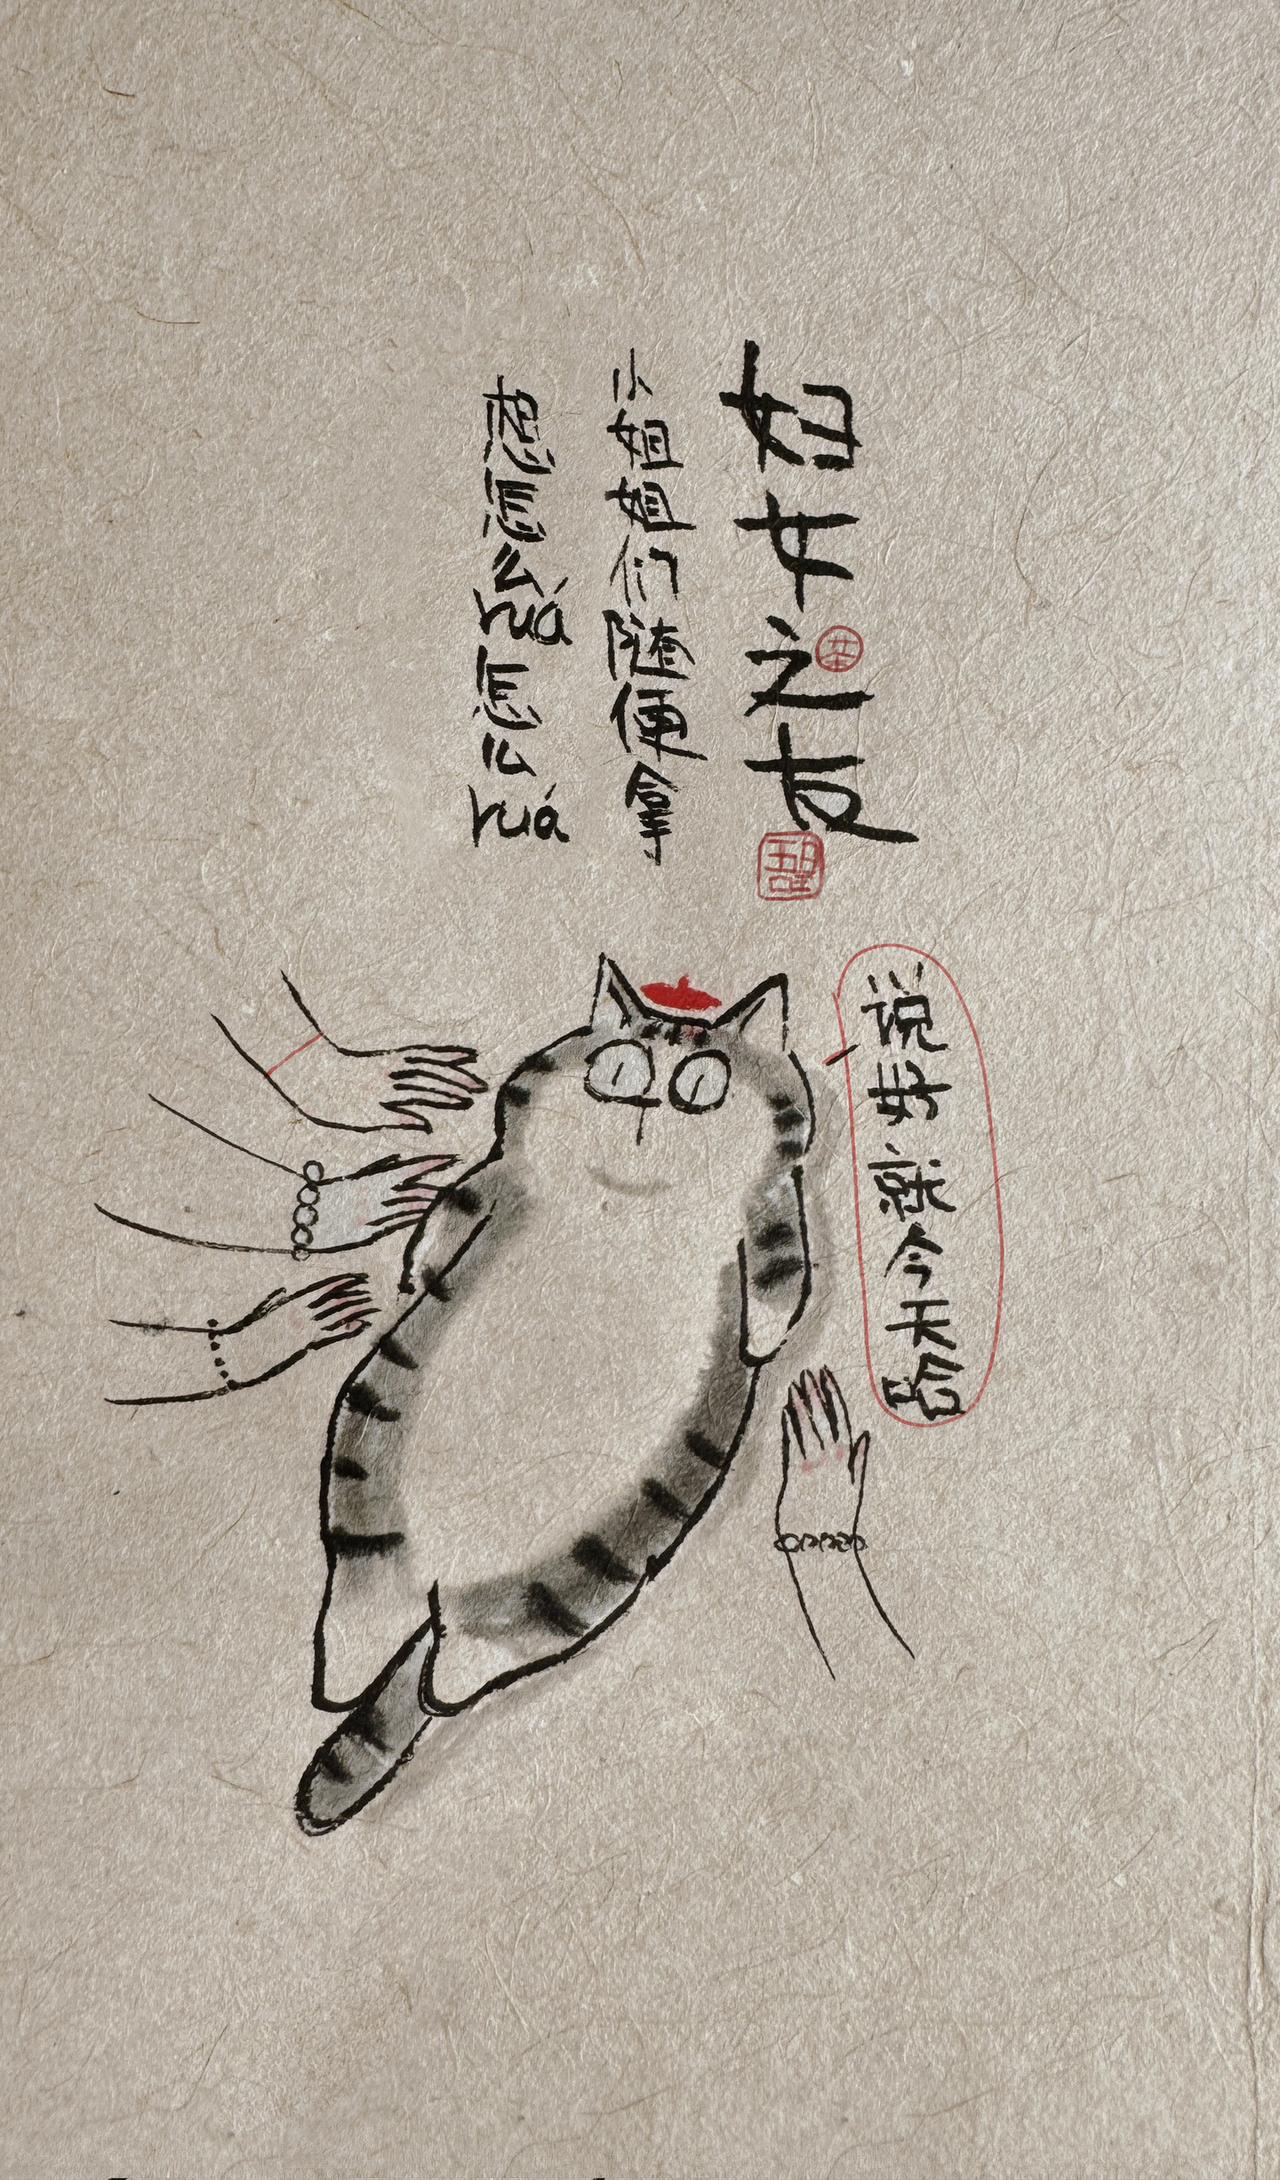 妇女之友
小姐姐们随便拿
想怎么ruá怎么ruá
说好就今天哈